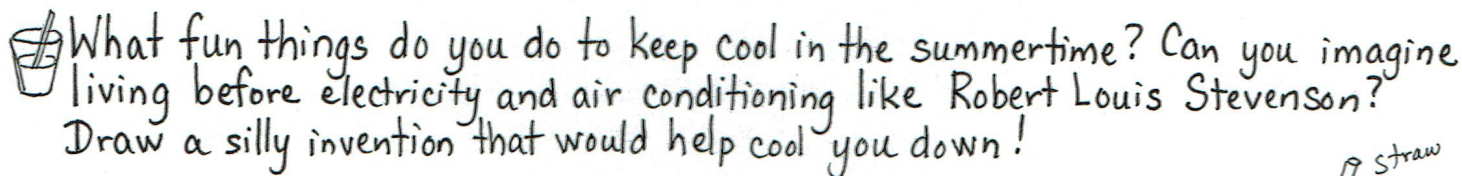 What fun things do you do to keep cool in the summertime? Can you imagine
living before electricity and air conditioning like Robert Louis Stevenson?
Draw a silly invention that would help cool you down!
straw